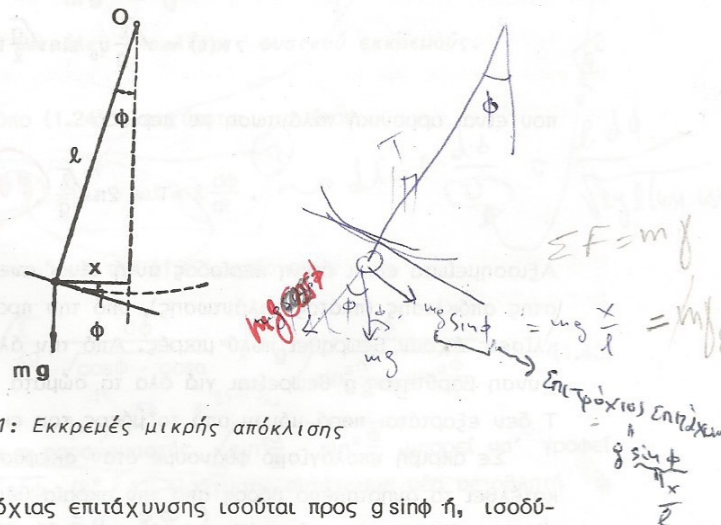 O
φ
l
x
φ
mg
1: Εκκρεμές μικρής απόκλισης
όχιας επιτάχυνσης ισούται προς g sinφ ή, ισοδύ-
φ
T
mg
mg sinφ = mg x/l = mg
ΣF = mγ
Επιτρόχιος Επιτάχυν
g sinφ
x/l